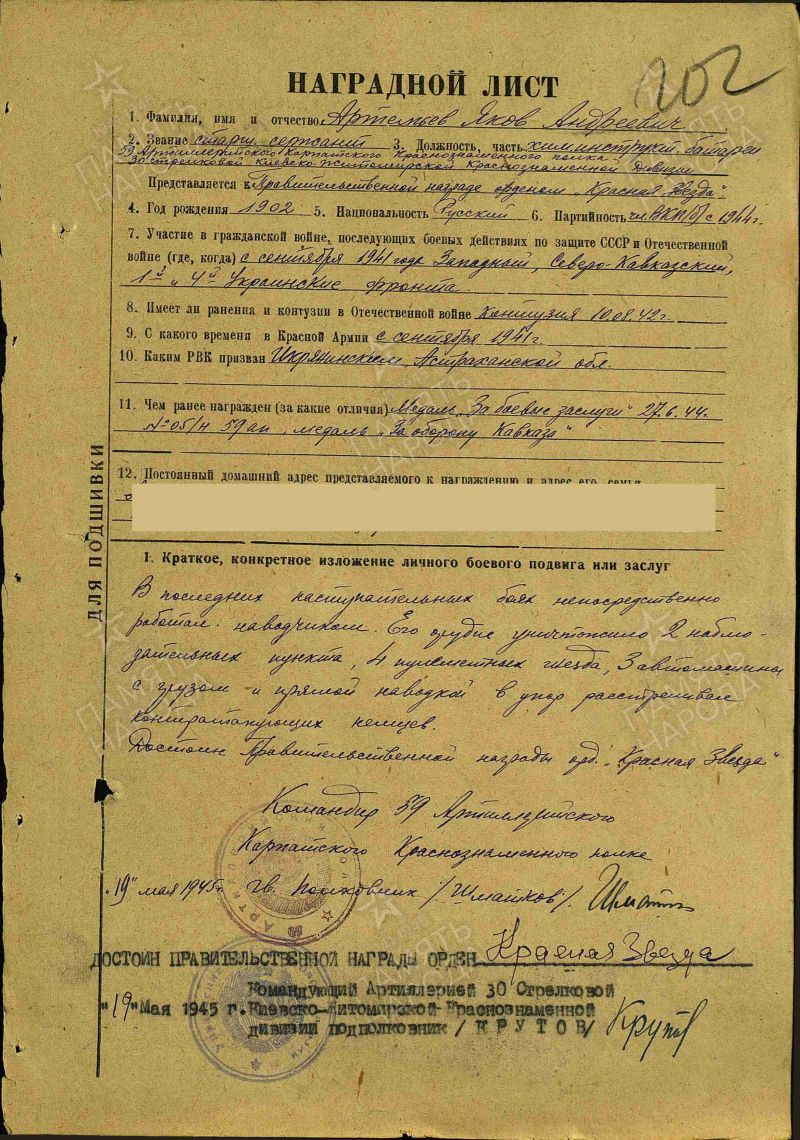 202
НАГРАДНОЙ ЛИСТ
1. Фамилия, имя и отчество Артемьев Яков Андреевич
2. Звание старш. сержант 3. Должность, часть химинструкт. батареи
59 Артиллерийского Карпатского Краснознаменного полка
30 стрелковой Киевско-Житомирской Краснознаменной Дивизии
Представляется к Правительственной награде орденом „Красная Звезда".
4. Год рождения 1902 5. Национальность Русский 6. Партийность чл. ВКП(б) с 1944 г.
7. Участие в гражданской войне, последующих боевых действиях по защите СССР и Отечественной
войне (где, когда) с сентября 1941 года Западный, Северо-Кавказский,
1й и 4й Украинские фронта.
8. Имеет ли ранения и контузии в Отечественной войне контузия 10.08.42 г.
9. С какого времени в Красной Армии с сентября 1941 г.
10. Каким РВК призван Икрянинским, Астраханской обл.
11. Чем ранее награжден (за какие отличия) Медаль „За боевые заслуги" 27.6.44.
№ 05/н 59 ап, медаль „За оборону Кавказа"
12. Постоянный домашний адрес представляемого к награждению и адрес его семьи
ДЛЯ ПОДШИВКИ
1. Краткое, конкретное изложение личного боевого подвига или заслуг
В последних наступательных боях непосредственно
работал наводчиком. Его орудие уничтожило 2 наблю-
дательных пункта, 4 пулеметных гнезда, 3 автомашины
с грузом и прямой наводкой в упор расстреливал
контратакующих немцев.
Достоин Правительственной награды орд. „Красная Звезда"
Командир 59 Артиллерийского
Карпатского Краснознаменного полка
„19" мая 1945 г. гв. полковник /Шмайков/. 
ДОСТОИН ПРАВИТЕЛЬСТВЕННОЙ НАГРАДЫ ОРДЕН Красная Звезда
Командующий Артиллерией 30 Стрелковой
"19" Мая 1945 г. Киевско-Житомирской Краснознаменной
дивизии подполковник / К Р У Т О В / Крутов
ПАМЯТЬ НАРОДА